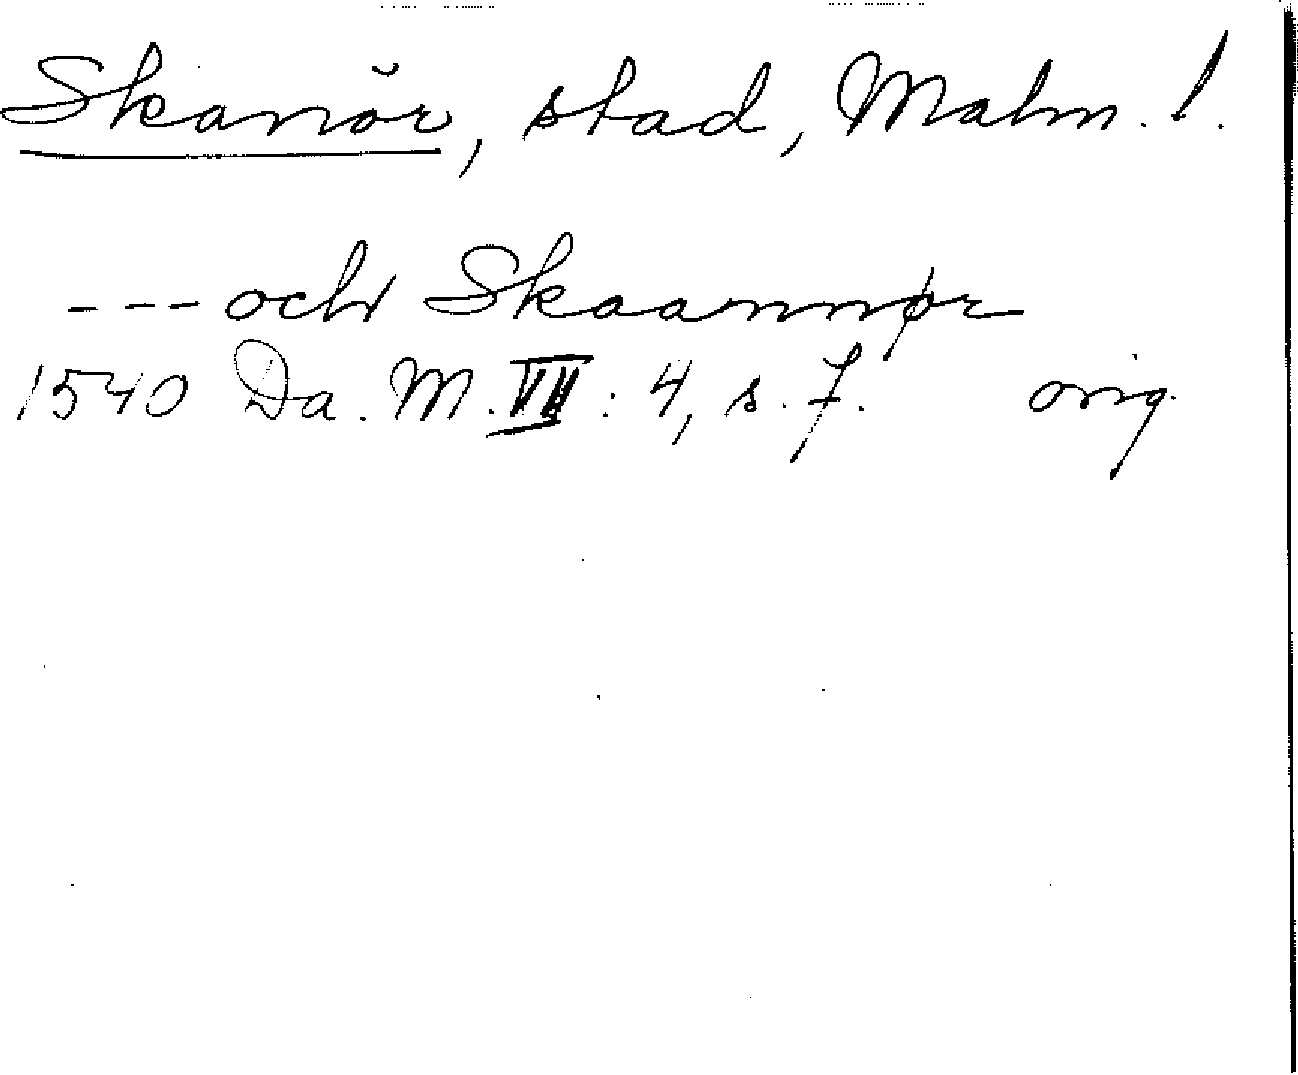 Skanör, stad, Malm. l.
--- och Skaannør
1540 Da. M. VII: 4, s. 7. orig.